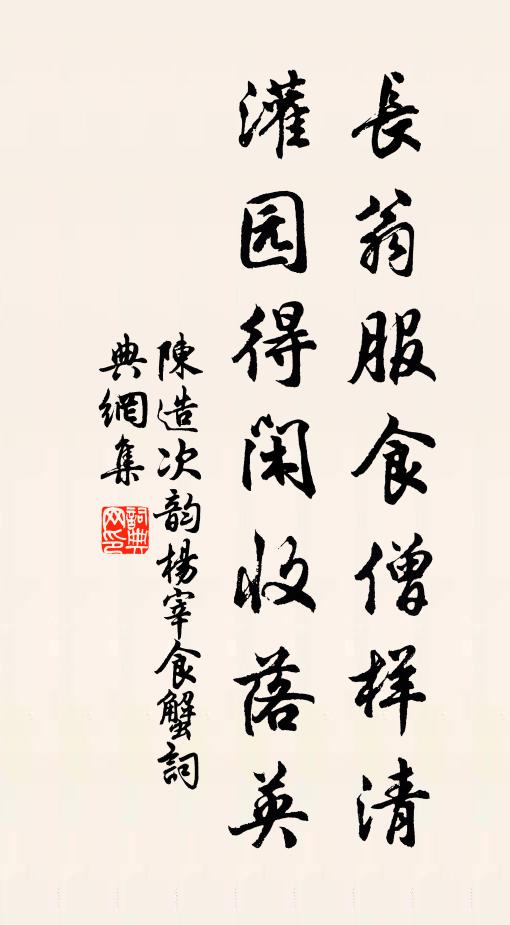 長翁服食僧样清
灌园得閑收落英
陳造次韵楊宰食蟹詞
典網集
詞典
网印